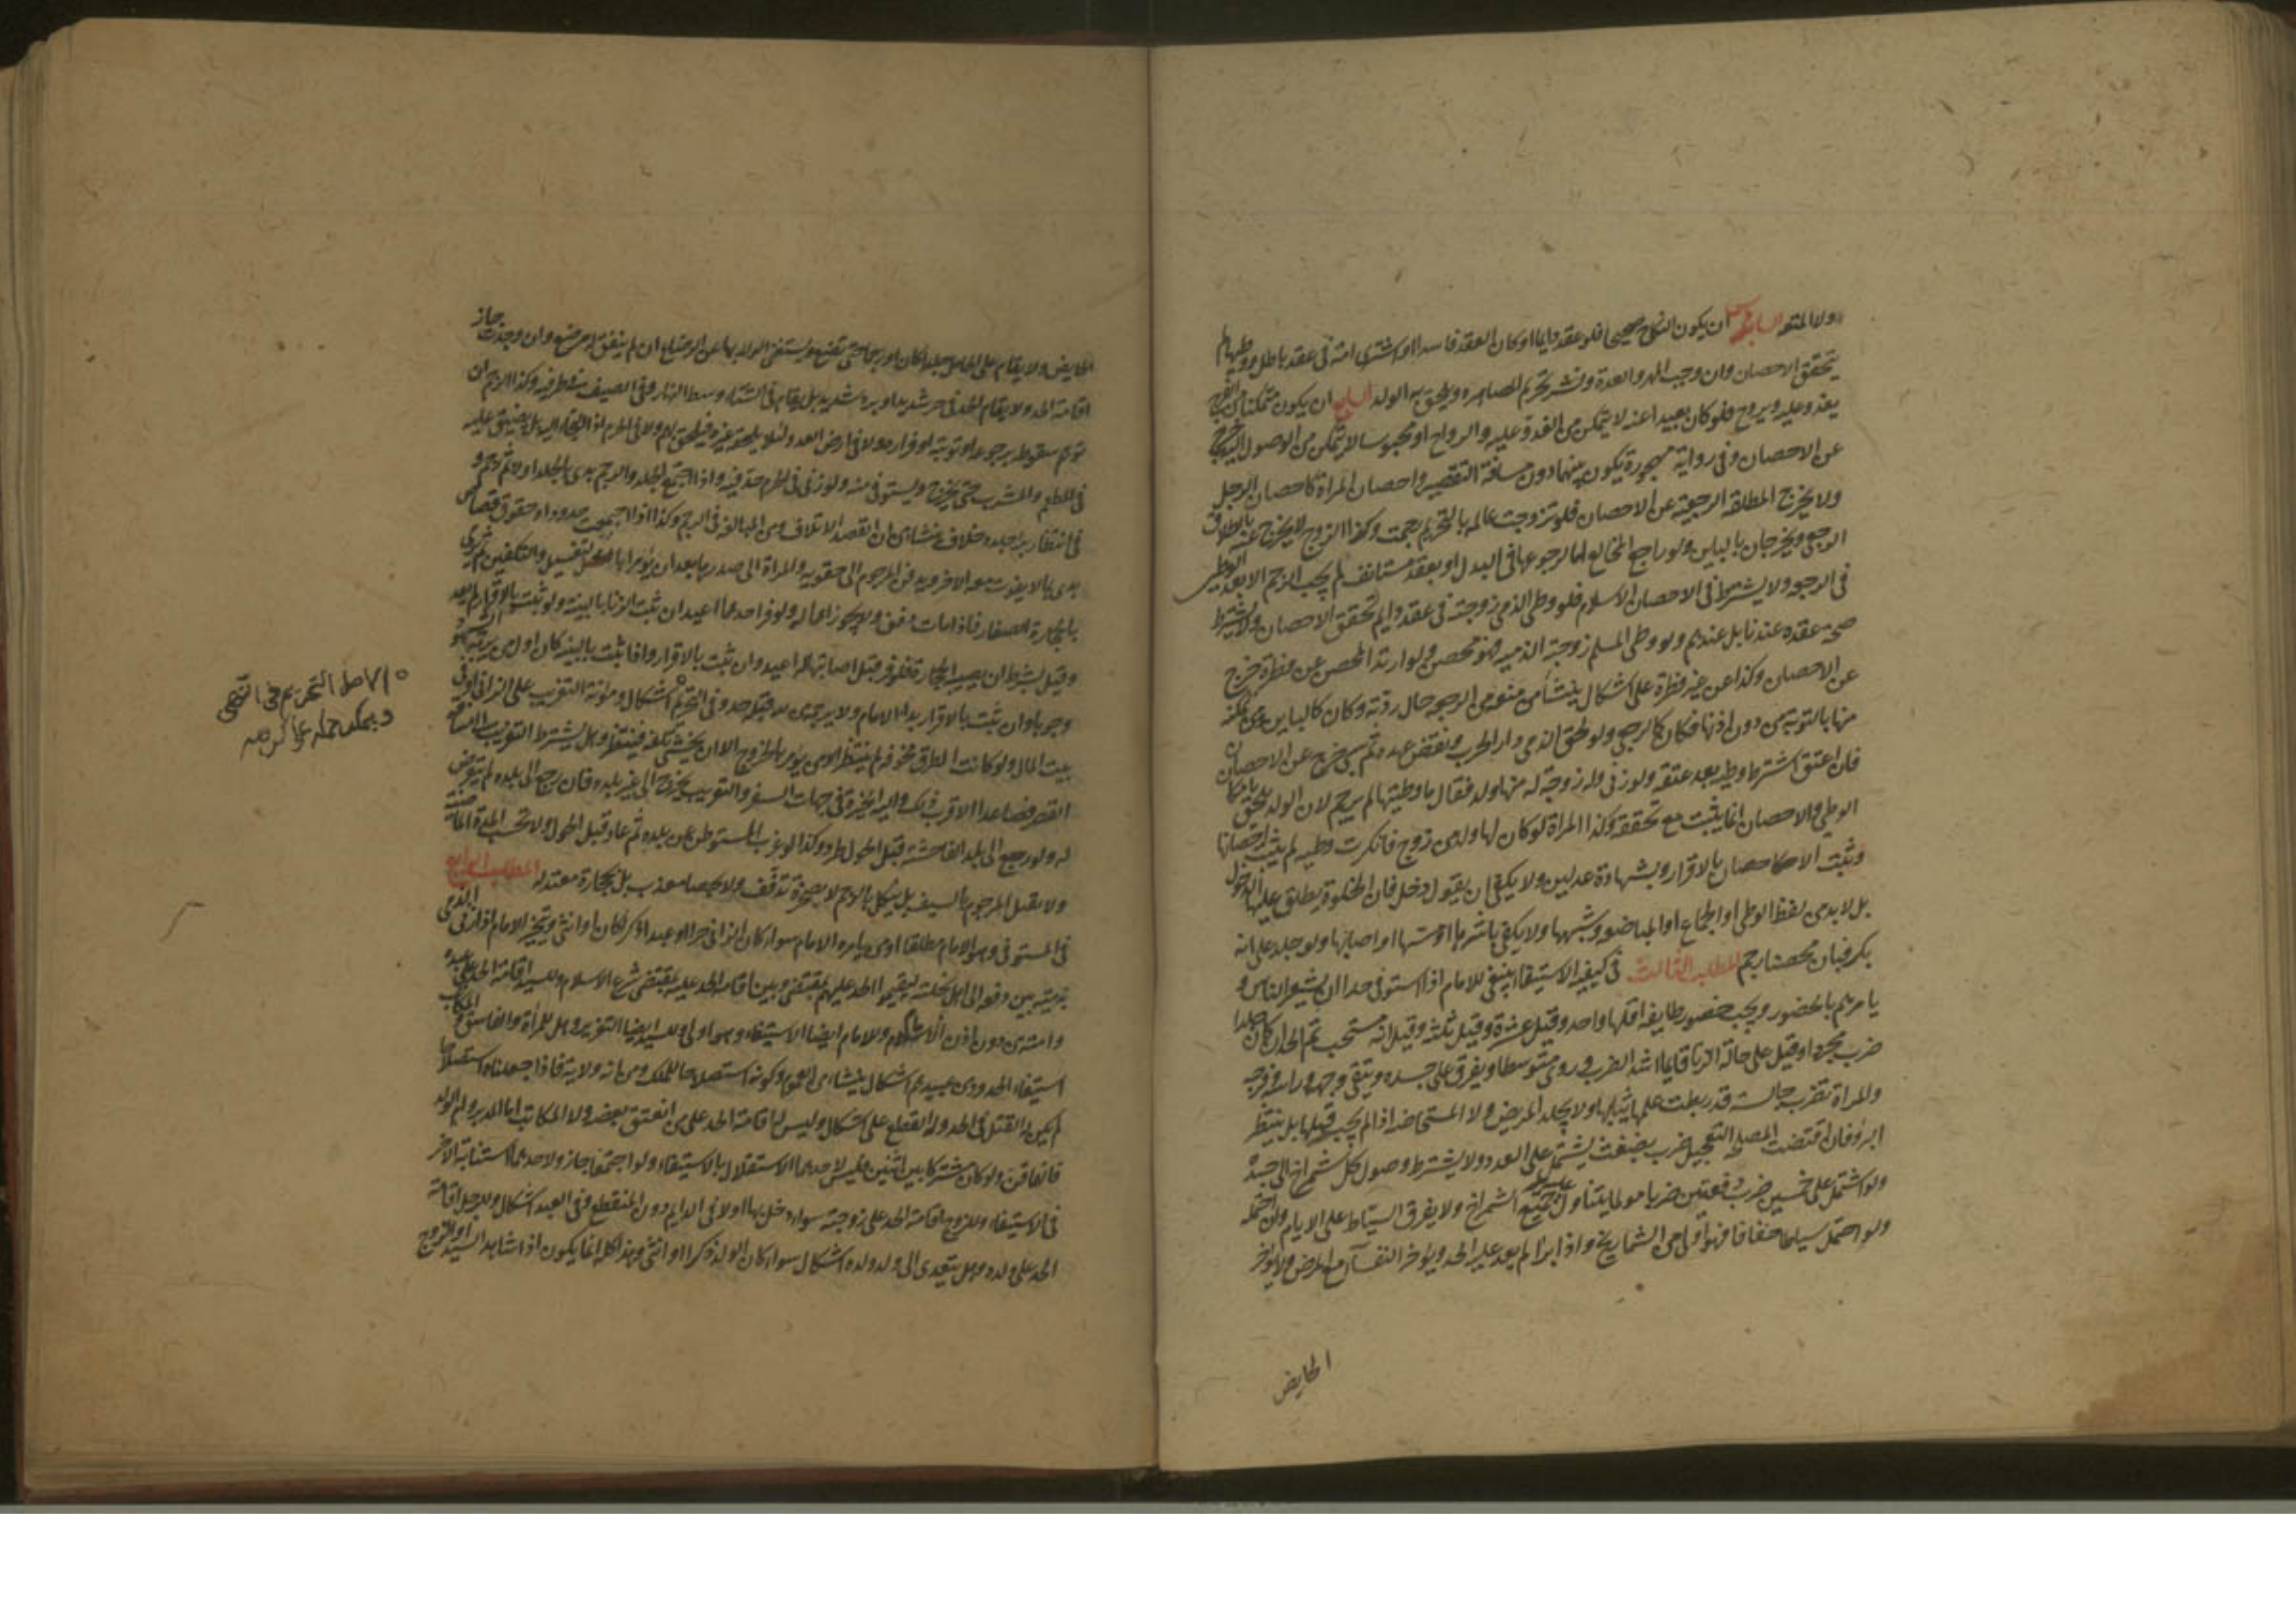 ولا المتعة السادس ان يكون النكاح صحيحا فلو عقد دايما وكان العقد فاسدا او اشترى امة في عقد باطل ووطيها لم
يتحقق الاحصان وان وجب المهر والعدة ونشر تحريم المصاهرة ويلحق به الولد السابع ان يكون متمكنا من الفرج
يغدو عليه ويروح فلو كان بعيدا عنه لا يتمكن من الغدو عليه والرواح او محبوسا لا يتمكن من الوصول اليه خرج
عن الاحصان وفي رواية مهجورة يكون بينهما دون مسافة التقصير واحصان المراة كاحصان الرجل
ولا يخرج المطلقة الرجعية عن الاحصان فلو تزوجت عالمة بالتحريم رجمت وكذا الزوج لا يخرج عنه بالطلاق
الرجعي ويخرجان بالباين ولو راجع المخالع اما لرجوعها في البذل او بعقد مستانف لم يجب الرجم الا بعد الوطي
في الرجوع ولا يشترط في الاحصان الاسلام فلو وطي الذمي زوجته في عقد دايم تحقق الاحصان ولا يشترط
صحة عقده عندنا بل عندهم ولو وطي المسلم زوجته الذمية فهو محصن ولو ارتد المحصن عن فطرة خرج
عن الاحصان وكذا عن غير فطرة على اشكال ينشا من منعه من الرجوع حال ردته وكان كالباين ومن تمكنه
منها بالتوبة من دون اذنها فكان كالرجعي ولو لحق الذمي دار الحرب ونقض عهده ثم سبي خرج عن الاحصان
فان اعتق اشترط وطيه بعد عتقه ولو زنى وله زوجة له منها ولد فقال ما وطيتها لم يرجم لان الولد يلحق بامكان
الوطي والاحصان انما يثبت مع تحققه وكذا المراة لو كان لها ولد من زوج فانكرت وطيه لم يثبت احصانها
ويثبت الاحصان بالاقرار وبشهادة عدلين ولا يكفي ان يقول دخل فان الخلوة يطلق عليها الدخول
بل لا بد من لفظ الوطي او الجماع او المباضعة وشبهها ولا يكفي باشرها او مسها او اصابها ولو جلد على انه
بكر فبان محصنا رجم المطلب الثالث في كيفية الاستيفا ينبغي للامام اذا استوفى حدا ان يشعر الناس و
يامرهم بالحضور ويجب حضور طايفة اقلها واحد وقيل عشرة وقيل ثلثة وقيل انه مستحب ثم الحد ان كان جلدا
ضرب مجردا وقيل على حالة الزنا قايما اشد الضرب وروي متوسطا ويفرق على جسده ويتقى وجهه وراسه وفرجه
والمراة تضرب جالسة قد ربطت عليها ثيابها ولا يجلد المريض ولا المستحاضة اذا لم يجب قتلها بل ينتظر
البرؤ فان اقتضت المصلحة التعجيل ضرب بضغث يشتمل على العدد ولا يشترط وصول كل شمراخ الى جسده
ولو اشتمل على خمسين ضرب دفعتين ضربا مولما يتناول جميع الشمراخ ولا يفرق السياط على الايام وان احتمله
ولو احتمل سياطا خفافا فهو اولى من الشماريخ واذا برا لم يعد عليه الحد ويؤخر النفسا مع المرض ولا يؤخر
الحايض
الحايض ولا يقام على الحامل جلدا كان او رجما حتى تضع ويستغني الولد بها عن الرضاع ان لم يتفق له مرضع وان وجدت جاز
اقامة الحد ولا يقام الحد في حر شديد او برد شديد بل يقام في الشتاء وسط النهار وفي الصيف في طرفيه وكذا الرجم ان
توهم سقوطه برجوعه او توبته او فراره ولا في ارض العدو لئلا يلحقه غيره فيلحق بهم ولا في الحرم اذا التجا اليه بل يضيق عليه
في المطعم والمشرب حتى يخرج ويستوفى منه ولو زنى في الحرم حد فيه واذا اجتمع الجلد والرجم بدئ بالجلد اولا ثم رجم و
في انتظار برء جلده خلاف منشاه ان القصد الاتلاف ومن المبالغة في الزجر وكذا اذا اجتمعت حدود او حقوق قصاص
بدئ بما لا يفوت معه الاخر ويدفن المرجوم الى حقويه والمراة الى صدرها بعد ان يؤمرا بالتغسيل والتكفين ثم يرمى
بالحجارة الصغار فاذا مات دفن ولا يجوز اهماله ولو فر احدهما اعيد ان ثبت الزنا بالبينة ولو ثبت بالاقرار لم يعد
وقيل بشرط ان يصيبه الحجارة فلو فر قبل اصابتها له اعيد وان ثبت بالاقرار واذا ثبت بالبينة كان اول من يرميه الشهود
وجوبا وان ثبت بالاقرار بدا الامام ولا يرجمه من لله قبله حد وفي التحريم اشكال ومؤنة التغريب على الزاني او في
بيت المال ولو كانت الطريق مخوفة لم ينتظر الامن بل يؤمر بالخروج الا ان يخشى تلفه فينتظر وهل يشترط التغريب الى مسافة
القصر فصاعدا الاقرب ذلك واليه الخيرة في جهات السفر والغريب يخرج الى غير بلده فان رجع الى بلده لم يتعرض
له ولو رجع الى بلد الفاحشة قبل الحول طرد وكذا لو غرب المستوطن عن بلده ثم عاد قبل الحول ولا تحسب المدة الماضية
ولا يقتل المرجوم بالسيف بل ينكل بالرجم لا بصخرة تذفف ولا بحصا يعذب بل بحجارة معتدلة المطلب الرابع
في المستوفي وهو الامام مطلقا او من يامره الامام سواء كان الزاني حرا او عبدا ذكرا كان او انثى ويتخير الامام اذا زنى الذمي
بذمية بين دفعه الى اهل نحلته ليقيموا الحد عليهم بمقتضى وبين اقامة الحد عليه بمقتضى شرع الاسلام وللسيد اقامة الحد على عبده
وامته من دون اذن الامام وللامام ايضا الاستيفاء وهو اولى وللسيد ايضا التعزير وهل للمراة والفاسق والمكاتب
استيفاء الحدود من عبيدهم اشكال ينشا من العموم وكونه استصلاحا للملك ومن انه ولاية فاذا جعلناه استصلاحا
لم يكن له القتل في الحد وله القطع على اشكال وليس له اقامة الحد على من انعتق بعضه ولا المكاتب اما المدبر وام الولد
فانهما قن ولو كان مشتركا بين اثنين فليس لاحدهما الاستقلال بالاستيفاء ولو اجتمعا جاز ولاحدهما استنابة الاخر
في الاستيفاء وللزوج اقامة الحد على زوجته سواء دخل بها اولا في الدايم دون المنقطع وفي العبد اشكال وللرجل اقامة
الحد على ولده وهل يتعدى الى ولد ولده اشكال سواء كان الولد ذكرا او انثى وهذا كله انما يكون اذا شاهد السيد او الزوج
الاصل التحريم في النهي
ويمكن حمله على الكراهة